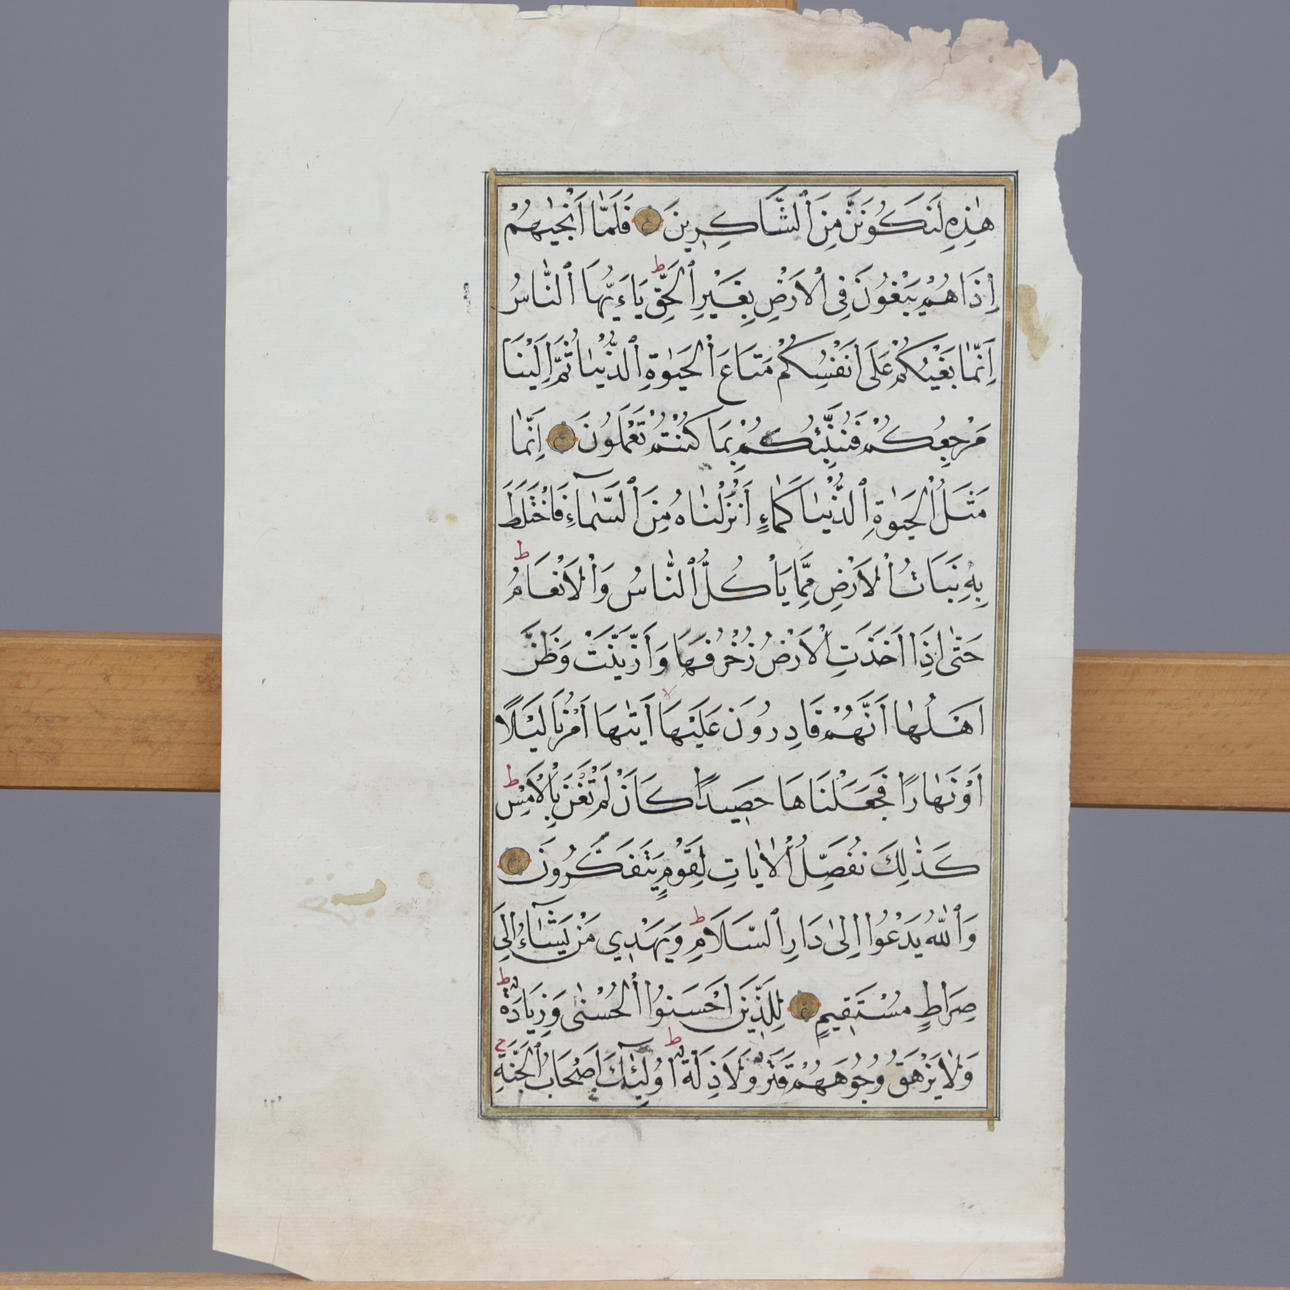 هٰذِهِ لَنَكُونَنَّ مِنَ ٱلشَّاكِرِينَ فَلَمَّا اَنْجٰيهُمْ
اِذَا هُمْ يَبْغُونَ فِى ٱلْاَرْضِ بِغَيْرِ ٱلْحَقِّ ط يَاءَيُّهَا ٱلنَّاسُ
اِنَّمَا بَغْيُكُمْ عَلٰٓى اَنْفُسِكُمْ مَتَاعَ ٱلْحَيٰوةِ ٱلدُّنْيَا ثُمَّ اِلَيْنَا
مَرْجِعُكُمْ فَنُنَبِّئُكُمْ بِمَا كُنْتُمْ تَعْمَلُونَ اِنَّمَا
مَثَلُ ٱلْحَيٰوةِ ٱلدُّنْيَا كَمَاءٍ اَنْزَلْنَاهُ مِنَ ٱلسَّمَاءِ فَاخْتَلَطَ
بِهِ نَبَاتُ ٱلْاَرْضِ مِمَّا يَاْكُلُ ٱلنَّاسُ وَٱلْاَنْعَامُ ط
حَتّٰى اِذَا اَخَذَتِ ٱلْاَرْضُ زُخْرُفَهَا وَٱزَّيَّنَتْ وَظَنَّ
اَهْلُهَا اَنَّهُمْ قَادِرُونَ عَلَيْهَا لا اَتٰيهَا اَمْرُنَا لَيْلًا
اَوْ نَهَارًا فَجَعَلْنَاهَا حَصِيدًا كَاَنْ لَمْ تَغْنَ بِٱلْاَمْسِ ط
كَذٰلِكَ نُفَصِّلُ ٱلْاٰيَاتِ لِقَوْمٍ يَتَفَكَّرُونَ
وَٱللّٰهُ يَدْعُوا اِلٰى دَارِ ٱلسَّلَامِ ط وَيَهْدِى مَنْ يَشَاءُ اِلٰى
صِرَاطٍ مُسْتَقِيمٍ لِلَّذِينَ اَحْسَنُوا ٱلْحُسْنٰى وَزِيَادَةٌ ط
وَلَا يَرْهَقُ وُجُوهَهُمْ قَتَرٌ وَلَا ذِلَّةٌ ط اُولٰٓئِكَ اَصْحَابُ ٱلْجَنَّةِ ج